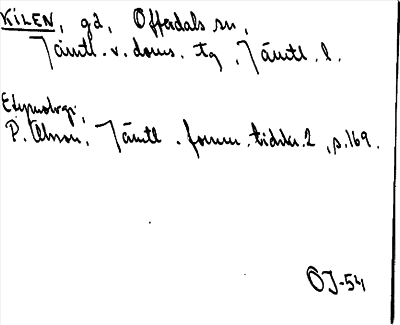 KILEN, gd, Offerdals sn,
Jämtl. v. doms. tg, Jämtl. l.
Etymologi:
P. Olsson, Jämtl. fornm. tidskr. 2, s. 169.
OJ-54